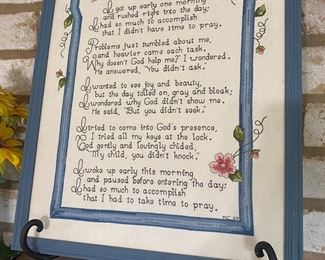 I got up early one morning
and rushed right into the day;
I had so much to accomplish
that I didn't have time to pray.
Problems just tumbled about me,
and heavier came each task.
Why doesn't God help me? I wondered.
He answered, "You didn't ask."
I wanted to see joy and beauty,
but the day toiled on, gray and bleak;
I wondered why God didn't show me.
He said, "But you didn't seek."
I tried to come into God's presence,
I tried all my keys at the lock.
God gently and lovingly chided,
"My child, you didn't knock."
I woke up early this morning
and paused before entering the day;
I had so much to accomplish
that I had to take time to pray.